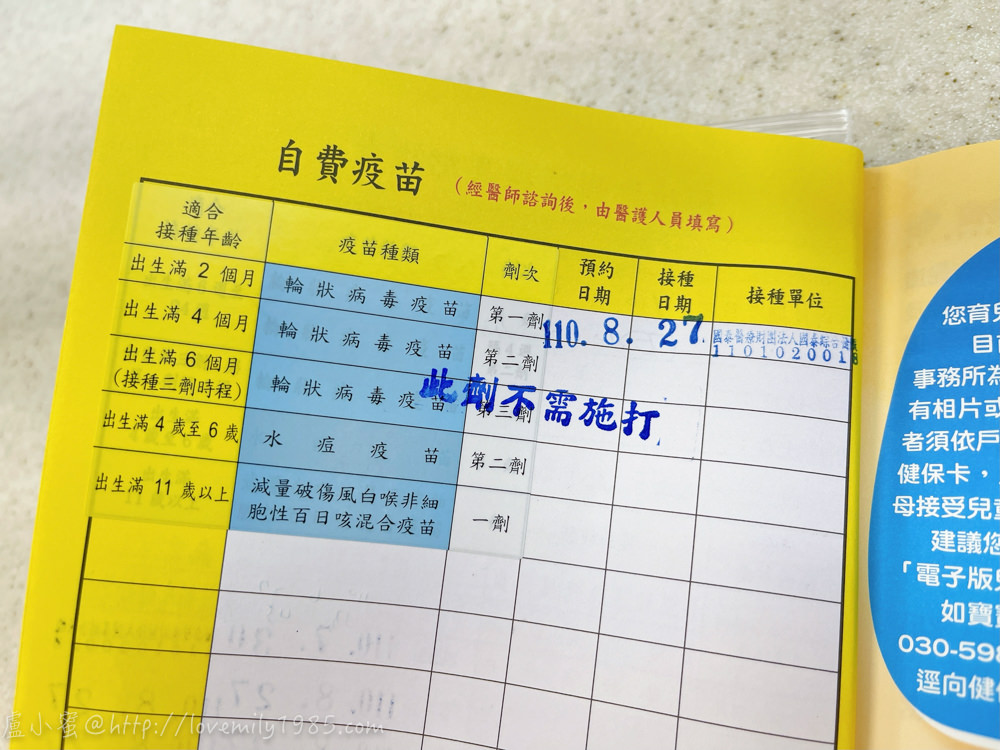 自費疫苗 (經醫師諮詢後，由醫護人員填寫)
適合
接種年齡
疫苗種類
劑次
預約
日期
接種
日期
接種單位
出生滿 2 個月
輪狀病毒疫苗
第一劑
110. 8. 27.
國泰醫療財團法人國泰綜合醫
1101020018
出生滿 4 個月
輪狀病毒疫苗
第二劑
出生滿 6 個月
(接種三劑時程)
輪狀病毒疫苗
第三劑
此劑不需施打
出生滿 4 歲至 6 歲
水痘疫苗
第二劑
出生滿 11 歲以上
減量破傷風白喉非細
胞性百日咳混合疫苗
一劑
您育兒
目前
事務所為
有相片或
者須依戶
健保卡，
母接受兒童
建議您
「電子版兒
如寶寶
030-598
逕向健保
盧小蜜@http://lovemily1985.com/